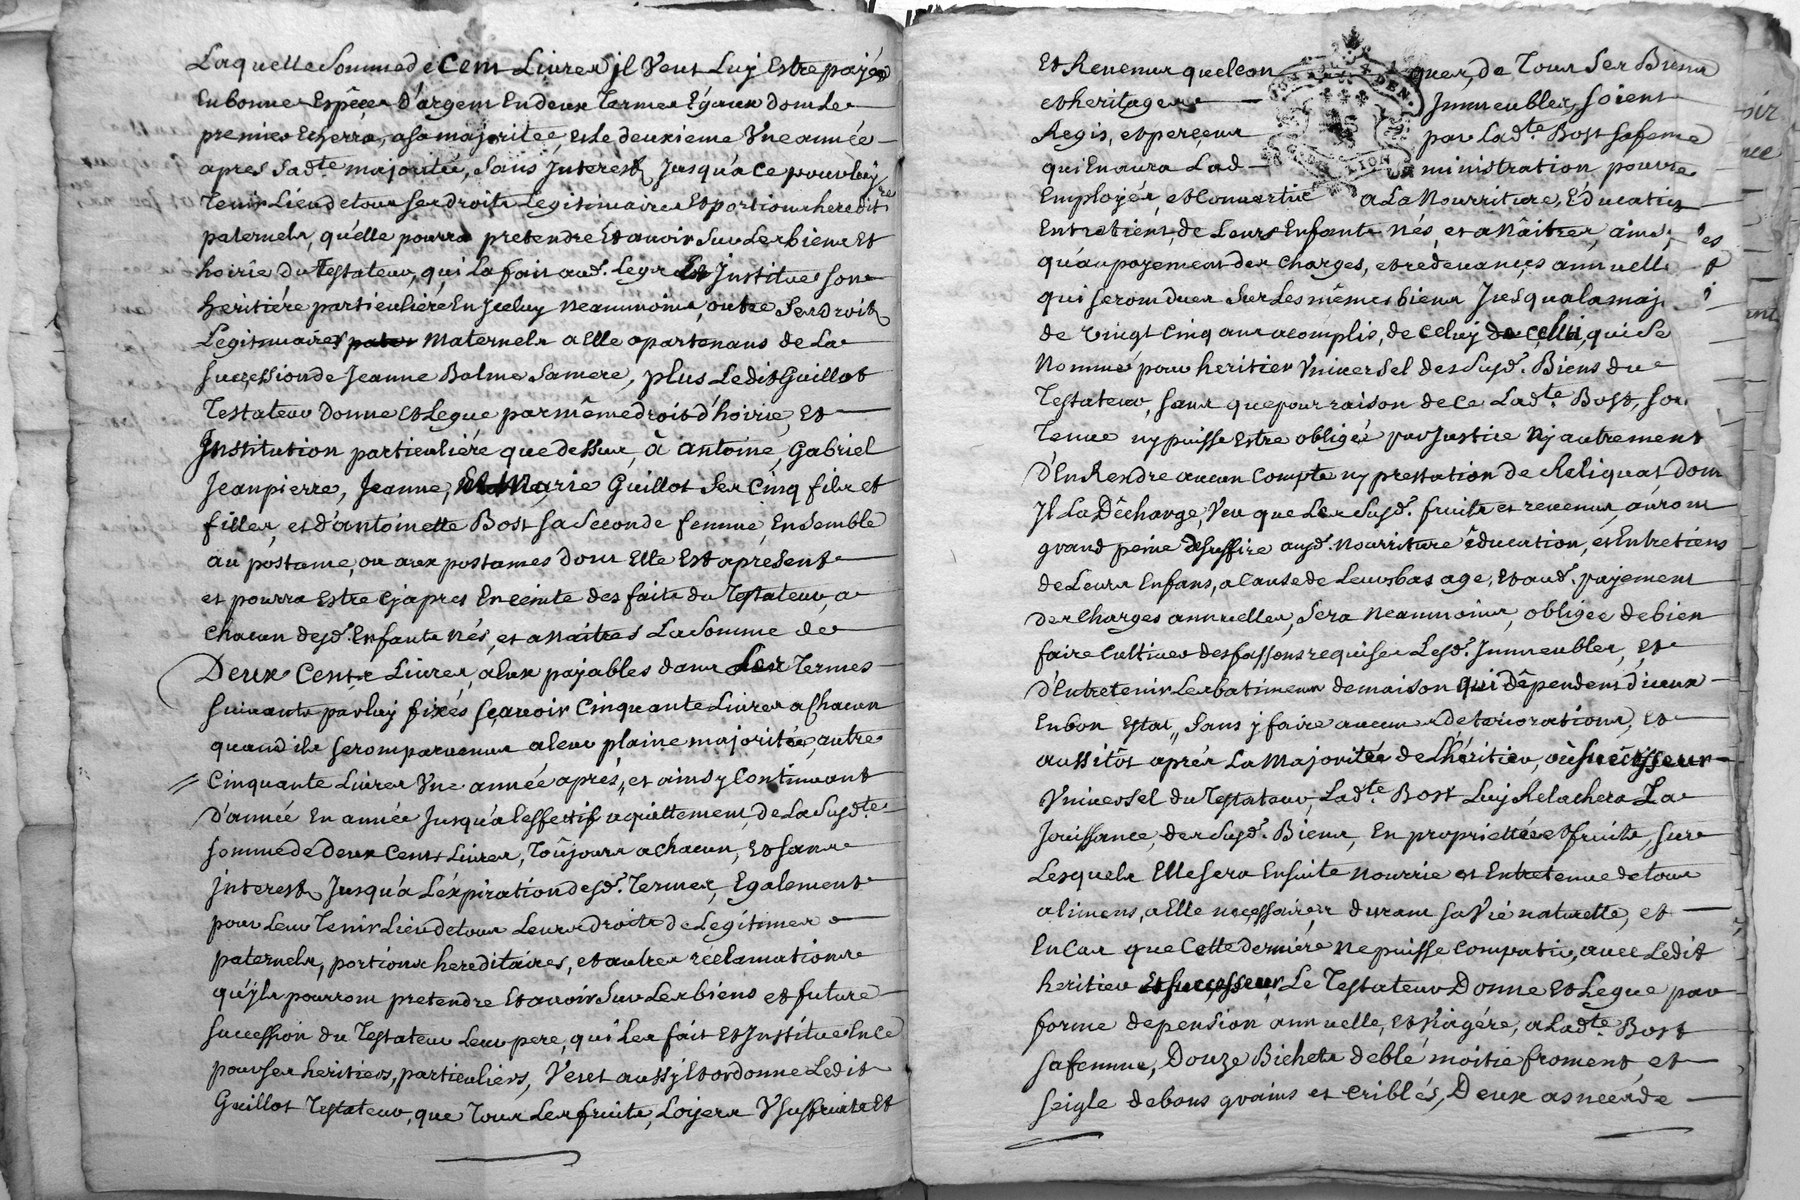 Laquelle Somme de Cent Livres il Veut Luy Estre payée
En bonnes Espêces d'argent En deux Termes Egaux dont Le
premier Echerra, a sa majoritée, et Le deuxieme Vne année
apres Sadte majoritée, Sans Interest Jusqu'a ce pour luy
Tenir Lieu de tous ses droits Legitimaires Et portions heredit res
paternels, qu'elle pourra pretendre Et avoir Sur Les biens Et
hoirie du Testateur, qui La fait aud. Legs Et Institue son
heritiére particuliére En Iceluy neanmoins, outre Ses droits
Legitimaires Maternels a Elle apartenans de La
Successionde Jeanne Balme Samere, plus Ledit Guillot
Testateur Donne et Legue par même droit d'hoirie, Et
Institution particuliére que dessus, à Antoine, Gabriel
Jeanpierre, Jeanne, Marie Guillot Ses Cinq fils et
filles, et d'antoinette Bost sa Seconde femme, Ensemble
au postume, ou aux postumes dont Elle Est apresent
et pourra Estre cyapres Enceinte des faits du Testateur, a
chacun desd. Enfants nés, et a naitres La Somme de
Deux Cents Livres, a Eux payables dans Les Termes
suivants par luy fixés sçavoir Cinquante Livres a Chacun
quand ils seront parvenus a leur plaine majoritée, autre
Cinquante Livres Vne année apres, et ainsy Continuant
D'année En année Jusqu'à l'effectif aquittement, de La Susdte
somme de Deux Cents Livres, Toûjours a chacun, Et sans
interest Jusqu'a L'éxpiration desd. Termes, Egalement
pour Leur Tenir Lieu de tous Leurs droits de Legitimes
paternels, portions hereditaires, et autres reclamations
qu'yls pourront pretendre Et avoir Sur Les biens et future
succession du Testateur Leur pere, qui Les fait Et Institue En Ce
pour ses heritiers, particuliers, Veut aussy Et ordonne Ledit
Guillot Testateur, que Tous Les fruits, Loyers Vsufruits Et
Et Revenus quelcon ques, de Tous Ses Biens
et heritages Immeubles, soient
Regis, et perçeus par Ladte Bost sa feme
qui En aura Lad ministration pour Les
Employér, et Convertir a La Nourriture, Education
Entretient, de Leurs Enfants Nés, et a Nâitres, ainsy
qu'au payement des Charges, et redevances annuelles
qui seront dues Sur Les mêmes biens Jusqu'a la maj
de vingt Cinq ans acomplis, de Celuy qui Se
Nommé pour heritier Vniversel des Susd. Biens du
Testateur, sans que pour raison de Ce Ladte Bost, soit
Tenue ny puisse Estre obligée par Justice ny autrement
d'En Rendre aucun Compte ny prestation de Reliquat dont
Il La Dêcharge, Veu que Les Susd. fruits et revenus, auront
grand peine de Suffire ausd. Nourriture éducation, et Entretiens
de Leurs Enfans, a Cause de Leurs bas age, Et aud. payement
Des Charges annuelles, Sera Neanmoins, obligée de bien
faire Cultiver des fassons requises Lesd. Immeubles, et
d'Entretenir Les batimens de maison qui dêpendent d'iceux
En bon Estat, Sans y faire aucunes déteriorations, Et
aussitôt aprés La Majoritée de Lhéritier, où succésseur
Vniversel du Testateur, Ladte Bost Luy Relachera La
Jouissance, des Susd. Biens, En proprietée et fruits, sur
Lesquels Elle sera Ensuite Nourrie et Entretenue de tous
alimens, a Elle nécessaires durant sa Vie naturelle, et
En Cas que Cette derniére Ne puisse Compatir, avec Ledit
heritier Et Successeur, Le Testateur Donne Et Legue par
forme de pension annuelle, Et Viagére, a Ladte Bost
sa femme, Douze Bichets de blé, moitié froment, et
seigle de bons grains et criblés, Deux asnées de